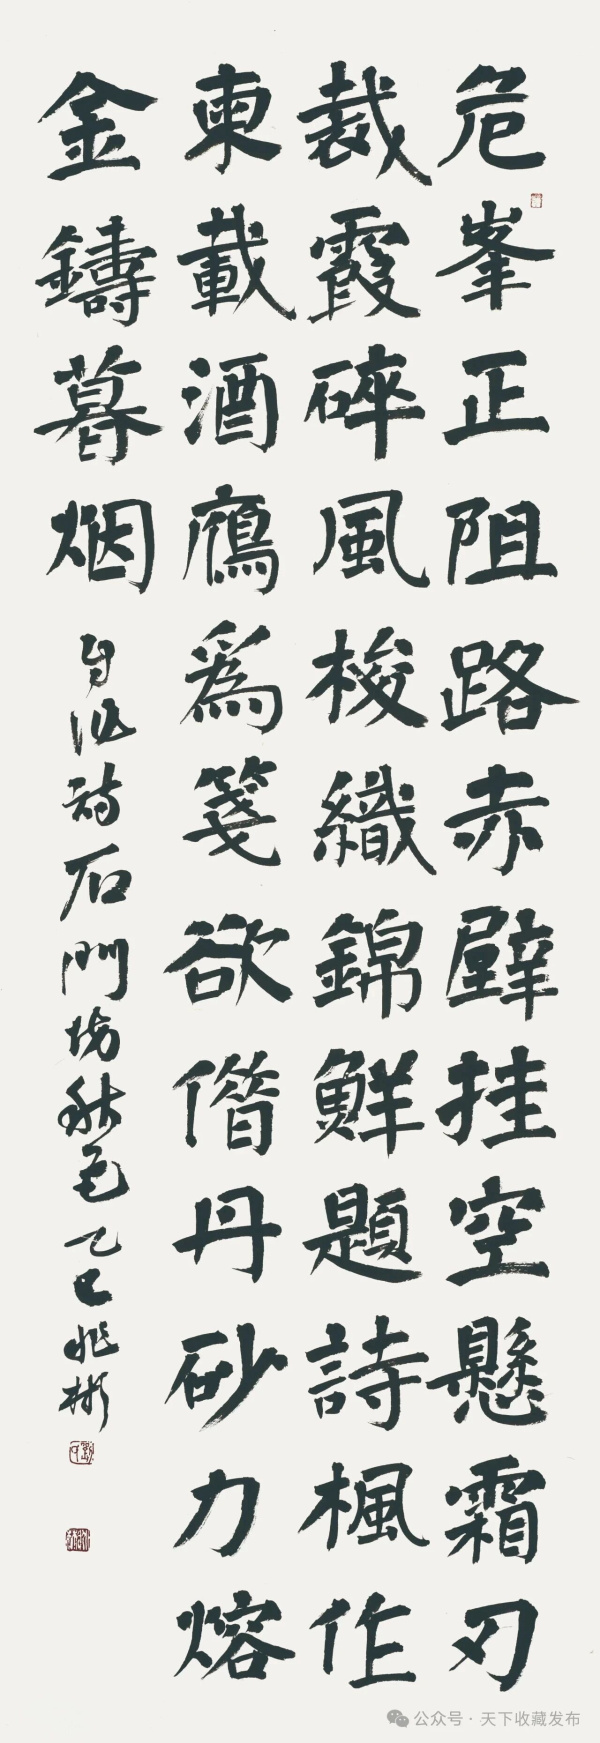 危峯正阻路赤壁挂空懸霜刃
裁霞碎風梭織錦鮮題詩楓作
柬載酒鴈爲箋欲借丹砂力熔
金鑄暮烟
自作詩石門坊秋色乙巳兆彬
公众号·天下收藏发布